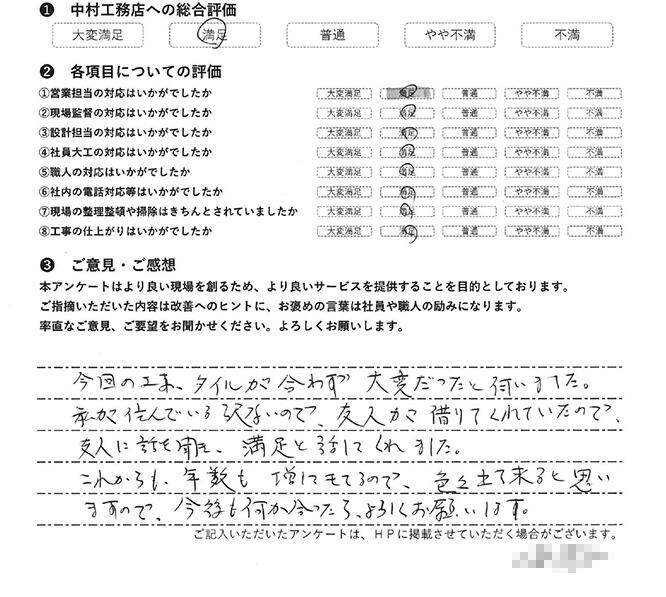 ❶ 中村工務店への総合評価
大変満足 満足 普通 やや不満 不満
❷ 各項目についての評価
①営業担当の対応はいかがでしたか 大変満足 満足 普通 やや不満 不満
②現場監督の対応はいかがでしたか 大変満足 満足 普通 やや不満 不満
③設計担当の対応はいかがでしたか 大変満足 満足 普通 やや不満 不満
④社員大工の対応はいかがでしたか 大変満足 満足 普通 やや不満 不満
⑤職人の対応はいかがでしたか 大変満足 満足 普通 やや不満 不満
⑥社内の電話対応等はいかがでしたか 大変満足 満足 普通 やや不満 不満
⑦現場の整理整頓や掃除はきちんとされていましたか 大変満足 満足 普通 やや不満 不満
⑧工事の仕上がりはいかがでしたか 大変満足 満足 普通 やや不満 不満
❸ ご意見・ご感想
本アンケートはより良い現場を創るため、より良いサービスを提供することを目的としております。
ご指摘いただいた内容は改善へのヒントに、お褒めの言葉は社員や職人の励みになります。
率直なご意見、ご要望をお聞かせください。よろしくお願いします。
今回の工事、タイルが合わず大変だったと伺いました。
私が住んでいる訳ないので、友人が借りてくれていたので、
友人に話を聞き、満足と話してくれました。
これからも、年数も増してるので、色々出て来ると思い
ますので、今後も何かあったら、よろしくお願いします。
ご記入いただいたアンケートは、HPに掲載させていただく場合がございます。